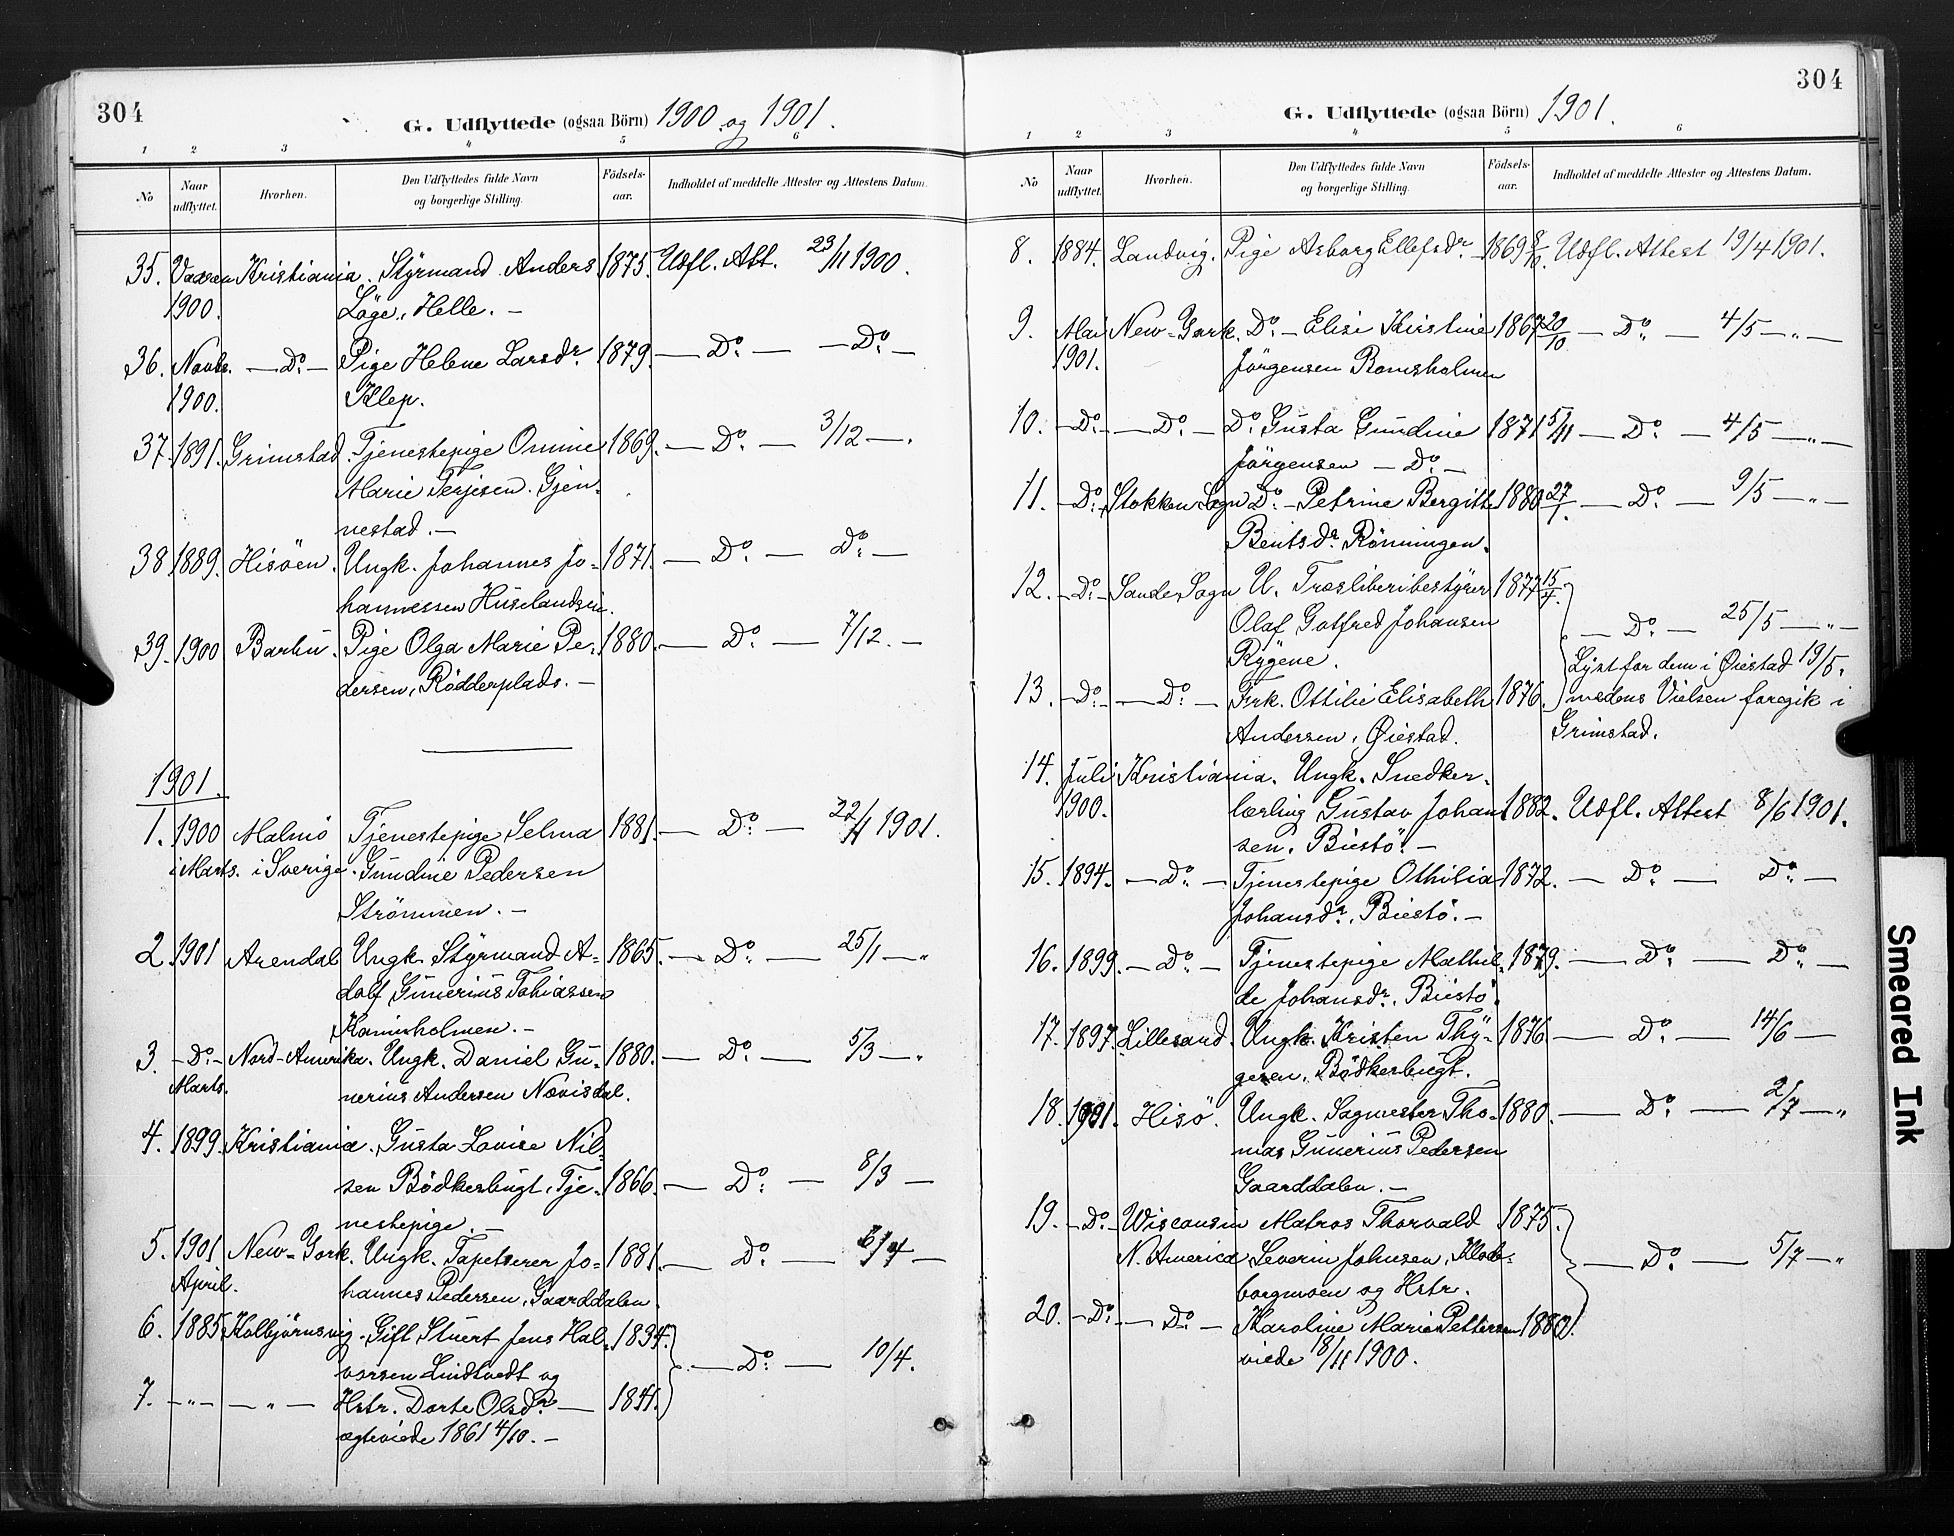 304
G. Udflyttede (ogsaa Börn) 1900 og 1901.
1 2 3 4 5 6
No
Naar udflyttet.
Hvorhen.
Den Udflyttedes fulde Navn og borgerlige Stilling.
Födsels-aar.
Indholdet af meddelte Attester og Attestens Datum.
35. Vaaren Kristiania. Styrmand Anders 1875. Udfl. Att. 23/11 1900.
1900. Løge, Helle. —
36. Novbr. — Do. — Pige Helene Larsdr. 1879. — Do. — — Do. —
1900. Klep.
37. 1891. Grimstad. Tjenestepige Omine 1869. — Do. — 3/12 — .
Marie Terjesen. Gjen-
nestad. —
38 1889. Hisöen. Ungk. Johannes Jo- 1871. — Do. — Do. —
hannessen
39. 1900 Barbu. Pige Olga Marie Pe- 1880. — Do. — 7/12. —
dersen, Rödderplads. —
1901.
1. 1900 Malmö Tjenestepige Selma 1881. — Do. — 22/1 1901.
i Marts. i Sverige. Gundine Pedersen
Strömmen. —
2. 1901 Arendal Ungk. Styrmand A- 1865. — Do. — 25/1 — "
dolf Gunerius Tobiassen
3. — Do. — Nord-Amerika. Ungk. Daniel Gu- 1880. — Do. — 5/3 — "
Marts. nerius Andersen Nævisdal.
4. 1899. Kristiania. Gusta Lovise Nil-
sen Bödkerbugt, Tje- 1866. — Do. — 8/3 —
nestepige. —
5. 1901 New-York. Ungk. Tapetserer Jo- 1881. — Do. — 6/4 —
April. hannes Pedersen, Gaarddalen.
6. 1885. Kolbjörnsvig. Gift Stuert Jens Hal- 1834.
vorsen Lindtvedt og — Do. — 10/4.
7. — " — — " — Hstr. Dorte Olsdr. — 1841.
ægteviede 1861 4/10. —
304
G. Udflyttede (ogsaa Börn) 1901.
1 2 3 4 5 6
No
Naar udflyttet.
Hvorhen.
Den Udflyttedes fulde Navn og borgerlige Stilling.
Födsels-aar.
Indholdet af meddelte Attester og Attestens Datum.
8. 1884. Landvig. Pige Asborg Ellefsdr. — 1869 Udfl. Attest 19/4 1901.
9. Mai New-York. Do. — Elise Kirstine 1867 20/10 — Do. — 4/5 — " —
1901. Jörgensen Bomsholmen
10. — Do. — — Do. — Do. Gusta Gundine 1871 5/11 — Do. — 4/5 — " —
Jörgensen — Do. —
11. — Do. Stokken Sogn Do. — Petrine Bergitte 1880 27/1. — Do. — 9/5 — " —
Bentsdr. Rönningen.
12. — Do. — Sande Sogn U. Træsliberibestyrer 1877 15/7.
Olaf Gotfred Johansen — Do. — 25/5 — " —
Rygene. Lyst for dem i Øiestad 19/5.
13. — Do. — — Do. — Frk. Ottilie Elisabeth 1876. medens Vielsen foregik i
Andersen, Øiestad. Grimstad.
14. Juli Kristiania. Ungk. Snedker-
1900. lærling Gustav Johan- 1882. Udfl. Attest 8/6 1901.
sen. Biestö. —
15. 1894. — Do. — Tjenestepige Othilia 1872. — Do. — Do. —
Johansdr. Biestö. —
16. 1899. — Do. — Tjenestepige Mathil- 1879. — Do. — Do. —
de Johansdr. Biestö.
17. 1897. Lillesand. Ungk. Kristen Thy- 1876. — Do. — 14/6 —
gesen, Bödkerbugt.
18. 1901. Hisö. Ungk. Sagmester Tho- 1880. — Do. — 2/7 — "
mas Gunerius Pedersen
Gaarddalen. —
19. — Do. — Wisconsin Matros Thorvald 1875.
N. America Severin Johnsen, — Do. — 5/7 — "
og Hstr.
20. — Do. — — Do. — Karoline Marie Pettersen 1880.
viede 18/11 1900.
Smeared Ink